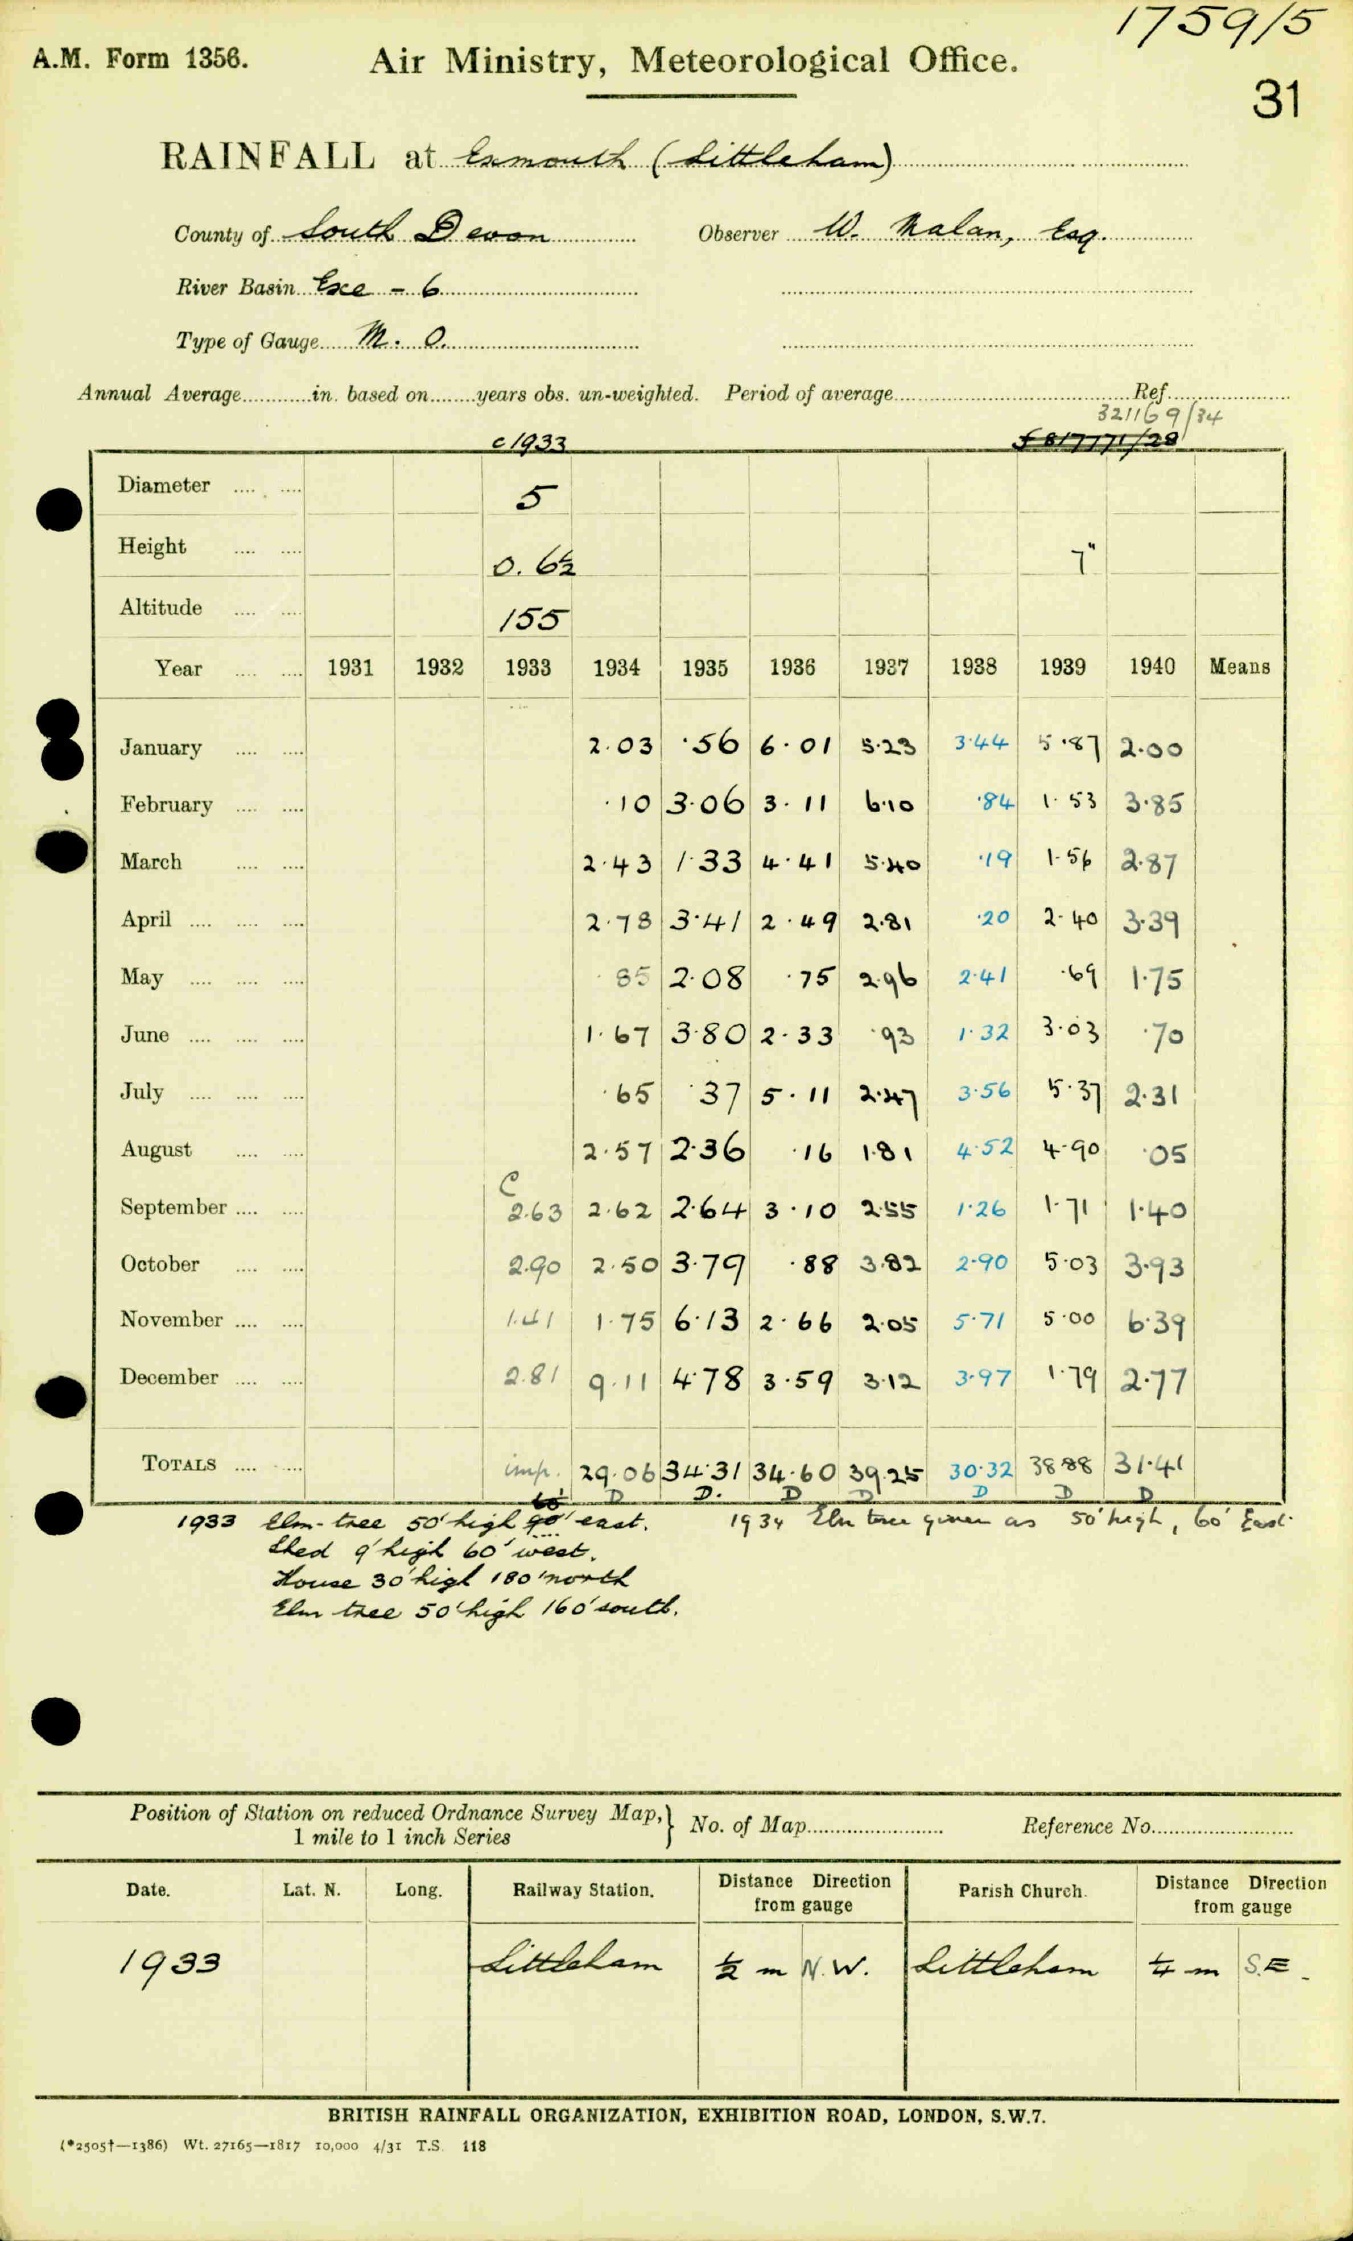 1759/5
A.M. Form 1356. Air Ministry, Meteorological Office.
31
RAINFALL at Exmouth (Littleham)
County of South Devon Observer W. Malan, Esq.
River Basin Exe - 6
Type of Gauge M. O.
Annual Average............in. based on........years obs. un-weighted. Period of average............Ref............
321169/34
c1933
Diameter .... .... 5
Height .... .... 0. 6½ 7"
Altitude .... .... 155
Year .... .... 1931 1932 1933 1934 1935 1936 1937 1938 1939 1940 Means
January .... .... 2.03 .56 6.01 5.23 3.44 5.87 2.00
February .... .... .10 3.06 3.11 6.10 .84 1.53 3.85
March .... .... 2.43 1.33 4.41 5.40 .19 1.56 2.87
April .... .... .... 2.78 3.41 2.49 2.81 .20 2.40 3.39
May .... .... .... .85 2.08 .75 2.96 2.41 .69 1.75
June .... .... .... 1.67 3.80 2.33 .93 1.32 3.03 .70
July .... .... .... .65 .37 5.11 2.47 3.56 5.37 2.31
August .... .... 2.57 2.36 .16 1.81 4.52 4.90 .05
C
September .... .... 2.63 2.62 2.64 3.10 2.55 1.26 1.71 1.40
October .... .... 2.90 2.50 3.79 .88 3.82 2.90 5.03 3.93
November .... .... 1.41 1.75 6.13 2.66 2.05 5.71 5.00 6.39
December .... .... 2.81 9.11 4.78 3.59 3.12 3.97 1.79 2.77
TOTALS .... .... imp. 29.06 34.31 34.60 39.25 30.32 38.88 31.41
D D. D D D D D
1933 Elm-tree 50' high 90' east. 1934 Elm tree given as 50' high, 60' East.
Shed 9' high 60' west.
House 30' high 180' north
Elm tree 50' high 160' south.
Position of Station on reduced Ordnance Survey Map,} No. of Map............ Reference No............
1 mile to 1 inch Series
Date. Lat. N. Long. Railway Station. Distance Direction from gauge Parish Church. Distance Direction from gauge
1933 Littleham ½ m N.W. Littleham ¼ m S.E.
BRITISH RAINFALL ORGANIZATION, EXHIBITION ROAD, LONDON, S.W.7.
(*2505†—1386) Wt. 27165—1817 10,000 4/31 T.S. 118